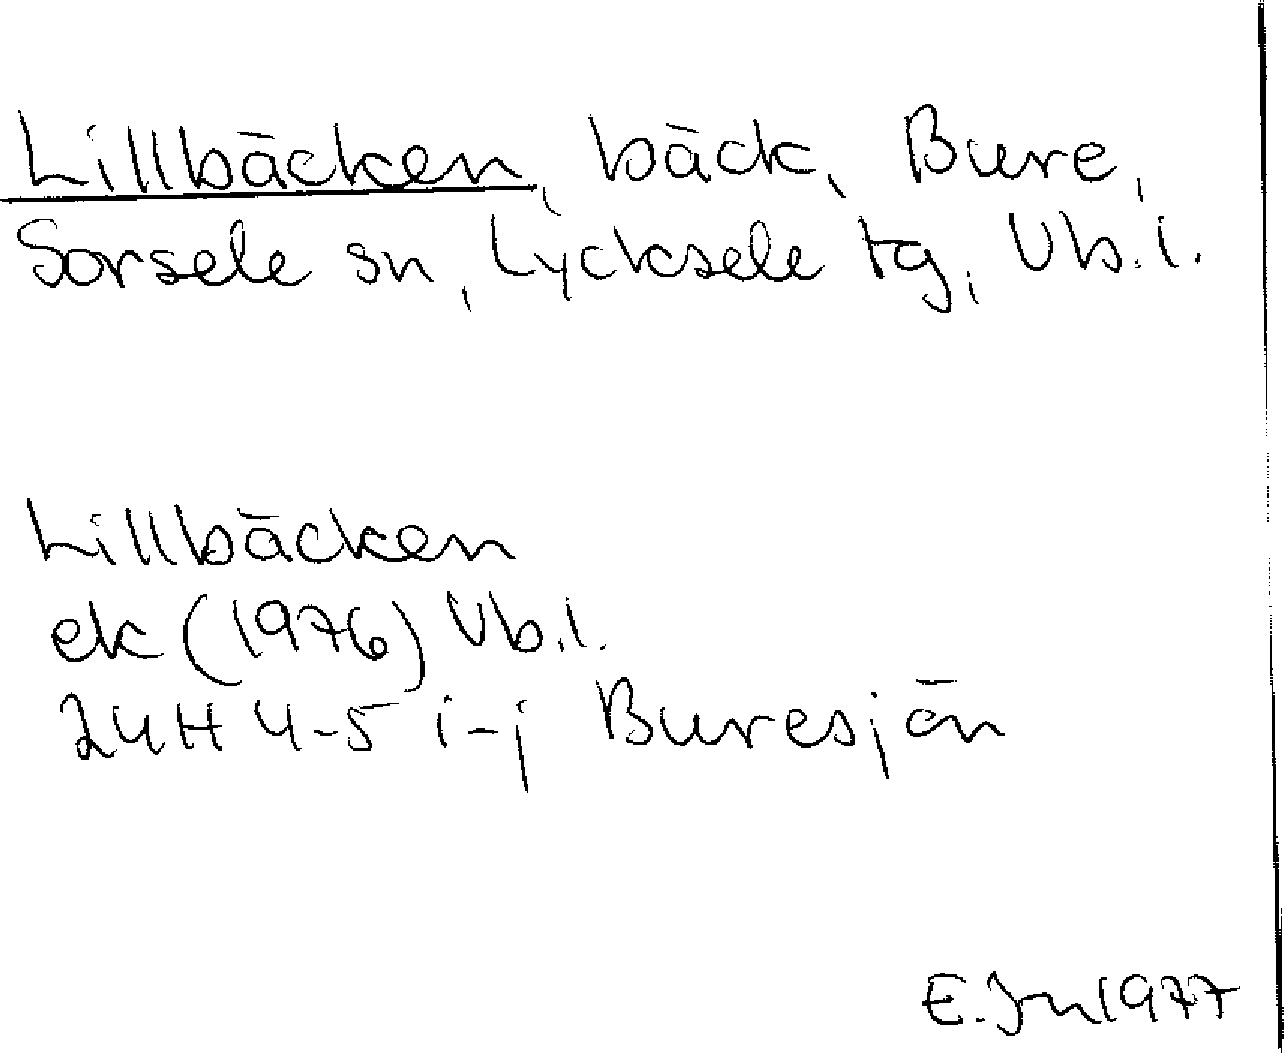 Lillbäcken, bäck, Bure,
Sorsele sn, Lycksele tg, Vb.l.
Lillbäcken
ek (1976) Vb.l.
24H 4-5 i-j Buresjön
E. Jn 1977